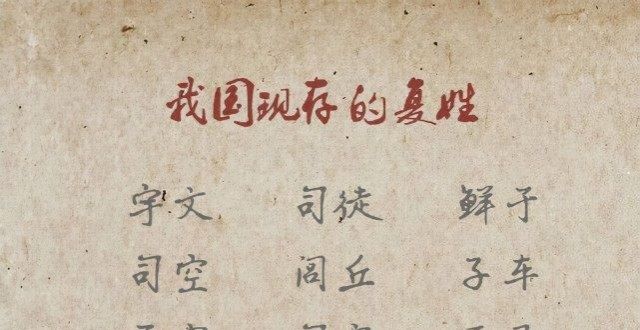 我国现存的复姓
宇文 司徒 鲜于
司空 闾丘 子车